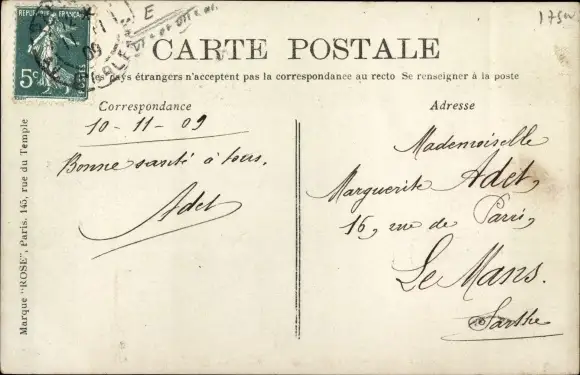 RÉPUBLIQUE FRANÇAISE
5c
E
CARTE POSTALE
pays étrangers n'acceptent pas la correspondance au recto Se renseigner à la poste
Correspondance
10-11-09
Bonne santé à tous.
Adet
Adresse
Mademoiselle
Marguerite Adet,
16, rue de Paris,
Le Mans.
Sarthe
Marque "ROSE", Paris. 145, rue du Temple